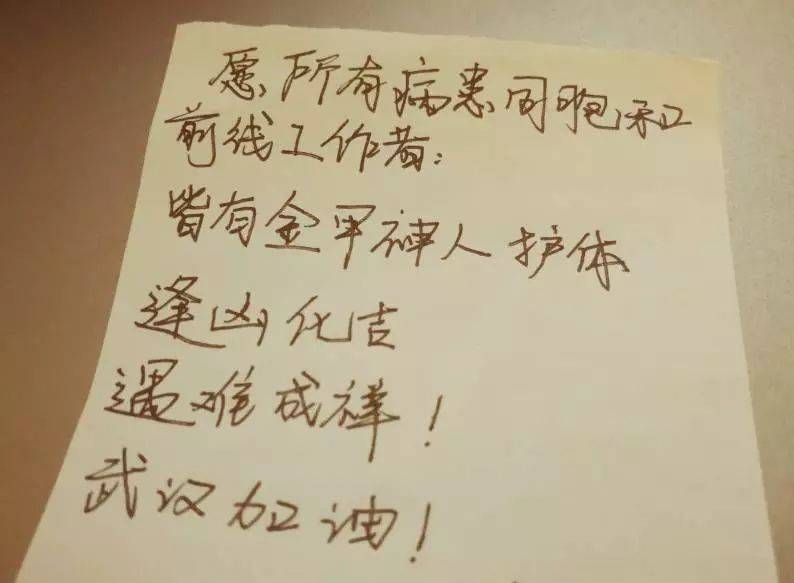 愿所有病患同胞和
前线工作者:
皆有金甲神人护体
逢凶化吉
遇难成祥!
武汉加油!